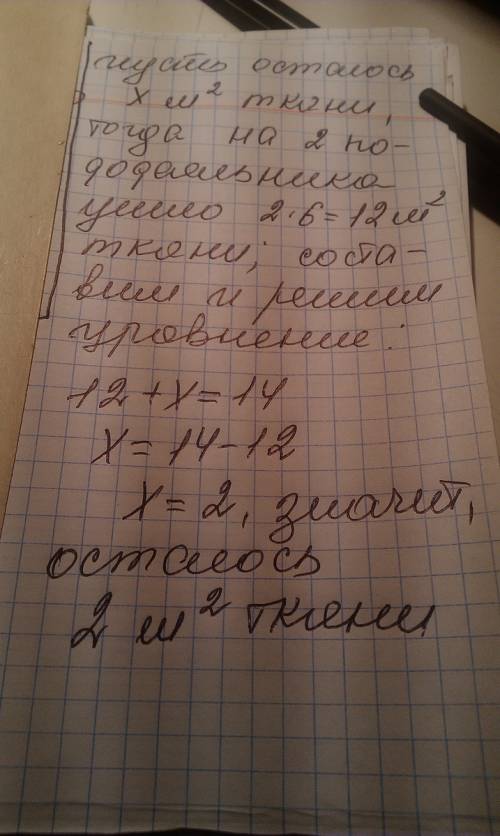 пусть осталось
x м² ткани,
тогда на 2 по-
додеяльника
ушло 2·6=12 м²
ткани; соста-
вим и решим
уровнение:
12+x=14
x=14-12
x=2, значит,
осталось
2 м² ткани